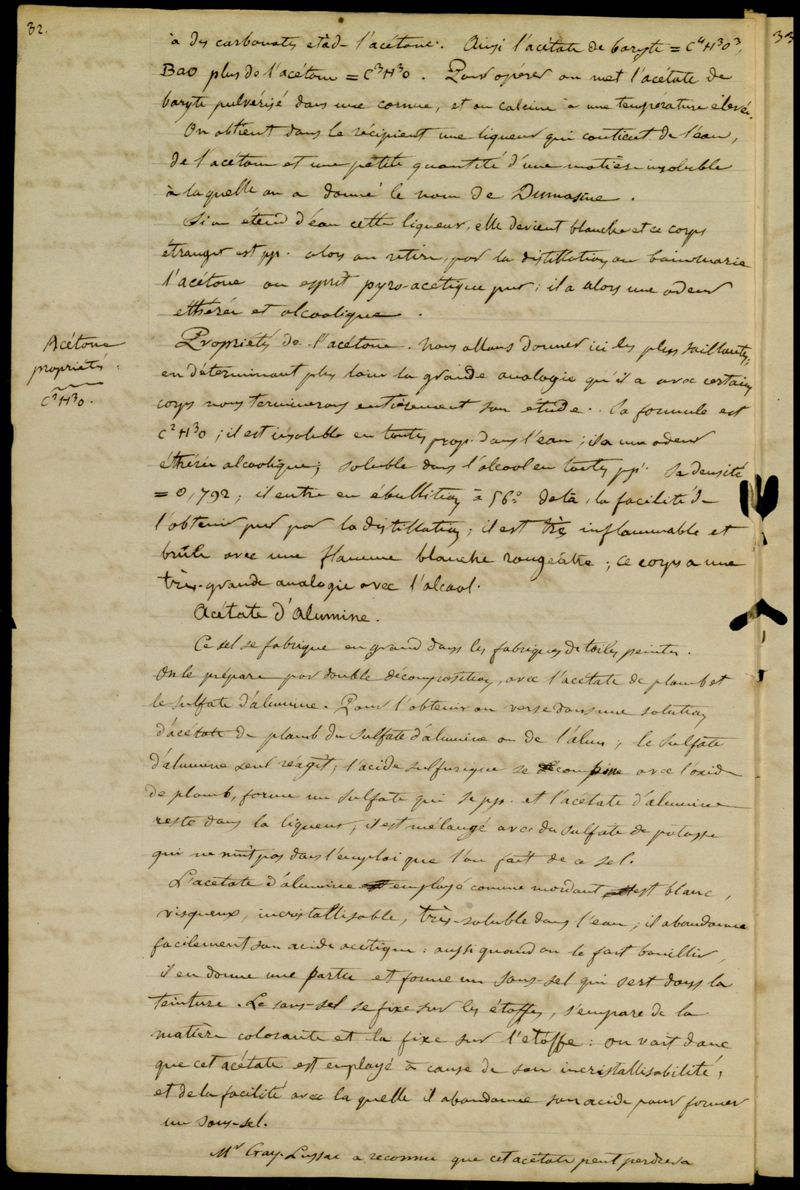 32.
33
à des carbonates et à de l'acétone. Ainsi l'acétate de baryte = C⁴H³O³,
BaO plus de l'acétone = C³H³O. Pour opérer on met l'acétate de
baryte pulvérisé dans une cornue, et on calcine à une température élevée.
On obtient dans le récipient une liqueur qui contient de l'eau,
de l'acétone et une petite quantité d'une matière insoluble
à laquelle on a donné le nom de Dumasine.
Si on étend d'eau cette liqueur, elle devient blanche et ce corps
étranger est pp. alors on retire, par la distillation au bain marie
l'acétone ou esprit pyro-acétique pur; il a alors une odeur
ethérée et alcoolique.
Acétone
propriétés.
C³H³O.
Propriétés de l'acétone. Nous allons donner ici les plus saillantes,
en déterminant plus loin la grande analogie qu'il a avec certains
corps nous terminerons entièrement son étude. Sa formule est
C³H³O; il est insoluble en toutes prop. dans l'eau; il a une odeur
éthérée alcoolique; soluble dans l'alcool en toutes pp. Sa densité
= 0,792; il entre en ébullition à 56° de là, la facilité de
l'obtenir pur par la distillation; il est très inflammable et
brûle avec une flamme blanche rougeâtre; ce corps a une
très-grande analogie avec l'alcool.
Acétate d'alumine.
Ce sel se fabrique en grand dans les fabriques de toiles peintes.
On le prépare par double décomposition, avec l'acétate de plomb et
le sulfate d'alumine. Pour l'obtenir on verse dans une solution
d'acétate de plomb du sulfate d'alumine ou de l'alun; le sulfate
d'alumine seul réagit; l'acide sulfurique se combine avec l'oxide
de plomb, forme un sulfate qui se pp. et l'acétate d'alumine
reste dans la liqueur, il est mélangé avec du sulfate de potasse
qui ne nuit pas dans l'emploi que l'on fait de ce sel.
L'acétate d'alumine employé comme mordant est blanc,
visqueux, incristallisable, très-soluble dans l'eau; il abandonne
facilement son acide acétique: aussi quand on le fait bouillir,
il en donne une partie et forme un sous-sel qui sert dans la
teinture. Le sous-sel se fixe sur les étoffes, s'empare de la
matière colorante et la fixe sur l'étoffe: on voit donc
que cet acétate est employé à cause de son incristallisabilité,
et de la facilité avec laquelle il abandonne son acide pour former
un sous-sel.
Mr Gay-Lussac a reconnu que cet acétate peut perdre sa